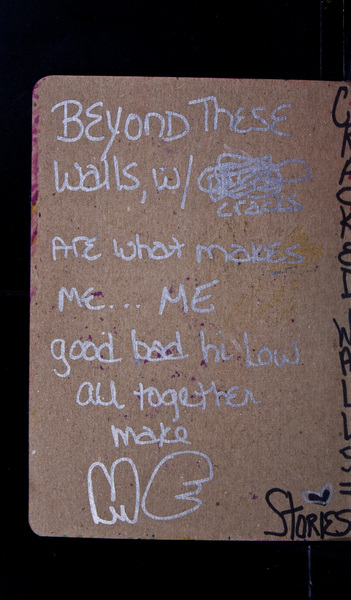 BEyonD These
walls, w/
cracks
ArE what makes
ME... ME
good bad hi Low
all together
make
ME
CRACKED WALLS!!
StoriES